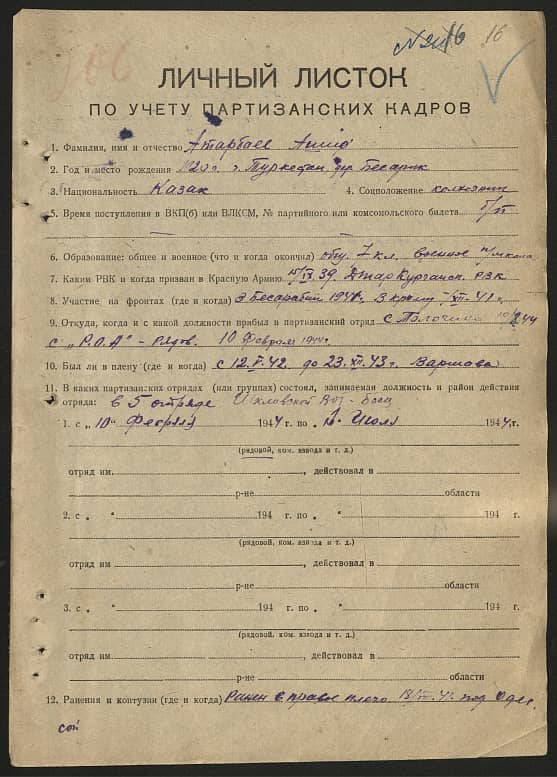 № 216 16
166
ЛИЧНЫЙ ЛИСТОК
ПО УЧЕТУ ПАРТИЗАНСКИХ КАДРОВ
1. Фамилия, имя и отчество Атарбаев
2. Год и место рождения 1920 г. г. Туркестан
3. Национальность Казак 4. Соцположение колхозник
5. Время поступления в ВКП(б) или ВЛКСМ, № партийного или комсомольского билета б/п
6. Образование: общее и военное (что и когда окончил) общ. 7 кл. военное п/школа
7. Каким РВК и когда призван в Красную Армию 15/IX 39. РВК
8. Участие на фронтах (где и когда) В Бесарабии 1941 г. В Крему 7/XII-41 г.
9. Откуда, когда и с какой должности прибыл в партизанский отряд с Толочина 10/2 44
с „Р.О.А" - Рядов. 10 Февраля 1944 г.
10. Был ли в плену (где и когда) с 12.V.42. до 23.XII.43 г. Варшава
11. В каких партизанских отрядах (или группах) состоял, занимаемая должность и район действия
отряда: в 5 отряде Боец
1. с „10" Февраля 1944 г. по „1" Июля 1944 г.
(рядовой, ком. взвода и т. д.)
отряд им , действовал в
р-не области
2. с „ " 194 г. по „ " 194 г.
(рядовой, ком. взвода и т. д.)
отряд им , действовал в
р-не области
3. с „ " 194 г. по „ " 194 г.
(рядовой, ком. взвода и т. д.)
отряд им. , действовал в
р-не области
12. Ранения и контузии (где и когда) Ранен в правое плечо 41 под Одес
сой